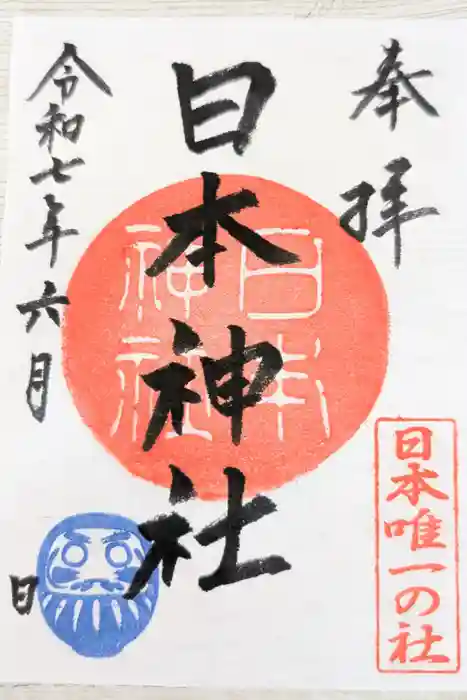 奉拝
日本唯一の社
日本神社
日本
神社
令和七年六月
日